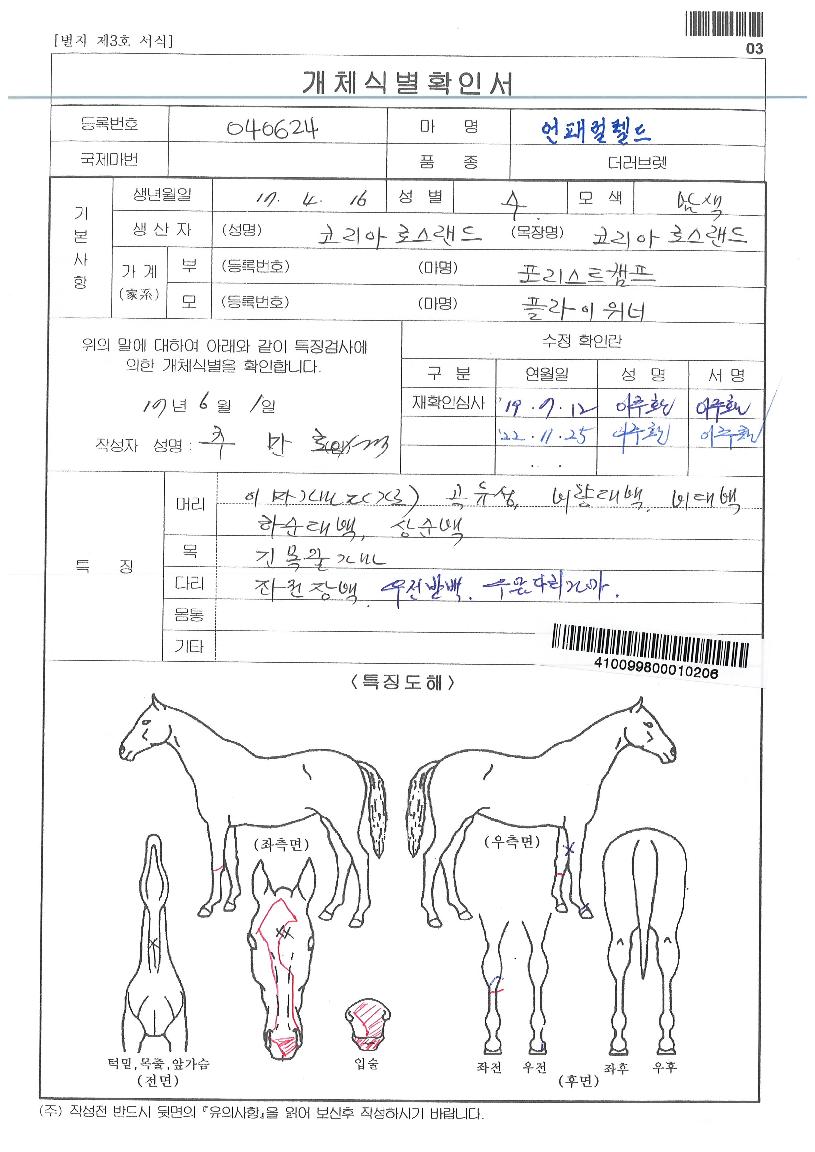 [별지 제3호 서식]
03
개체식별확인서
등록번호 040624 마 명 언패럴렐드
국제마번 품 종 더러브렛
기본사항
생년월일 17. 4. 16 성 별 수 모 색 밤색
생 산 자 (성명) 코리아 로스랜드 (목장명) 코리아 로스랜드
가 계 (家系) 부 (등록번호) (마명) 포리스트캠프
모 (등록번호) (마명) 플라이 위너
위의 말에 대하여 아래와 같이 특징검사에
의한 개체식별을 확인합니다.
17년 6월 1일
작성자 성명 :
수정 확인란
구 분 연월일 성 명 서 명
재확인심사 '19. 7. 12 이주헌 이주헌
'22. 11. 25 이주헌 이주헌
. .
특 징
머리 곡유성, 비량대백, 비대백
하순대백, 상순백
목
다리 좌전장백, 우전반백,
몸통
기타
410099800010206
<특징도해>
(좌측면)
(우측면)
턱밑,목줄,앞가슴
(전면)
입술
좌전 우전 좌후 우후
(후면)
(주) 작성전 반드시 뒷면의 『유의사항』을 읽어 보신후 작성하시기 바랍니다.